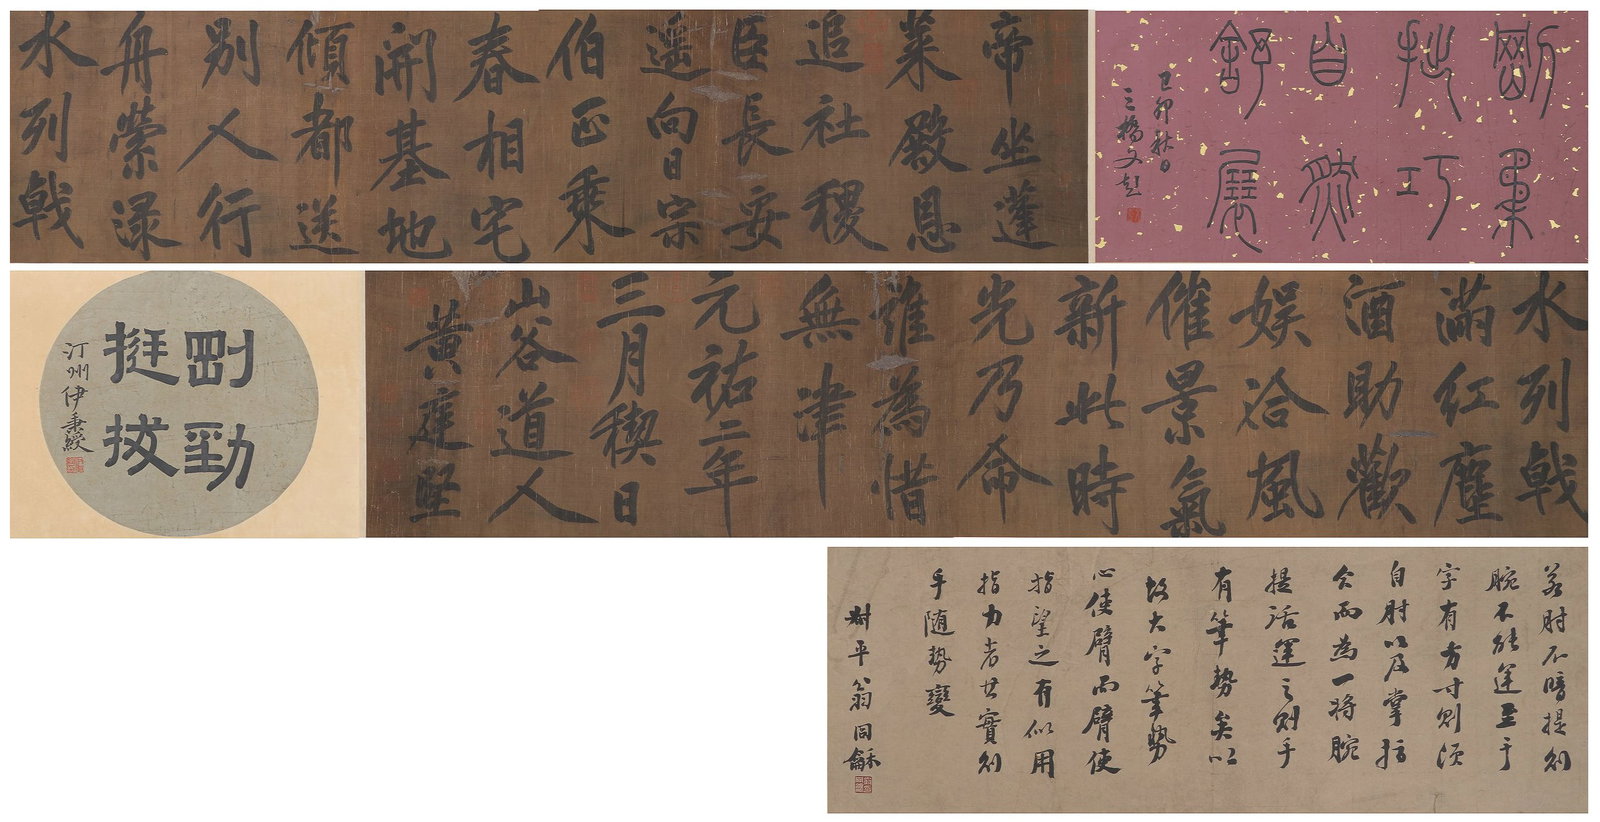 斲柔
拙巧
自然
舒展
己卯秋日
三橋文彭
帝坐蓬
萊殿恩
追社稷
臣長安
遥向日宗
伯正乘
春相宅
開基地
傾都送
别人行
舟縈渌
水列戟
水列戟
滿紅塵
酒助歡
娱洽風
催景氣
新此時
光乃命
誰為惜
無津
元祐二年
三月稧日
山谷道人
黄庭堅
剛勁
挺拔
汀州伊秉綬
若肘不暗提則
腕不能運至于
字有方寸則須
自肘以及掌指
今而為一將腕
提活運之則手
有筆勢矣以
故大字筆勢
心使臂而臂使
指望之有似用
指力者其實則
手隨勢變
尌平翁同龢